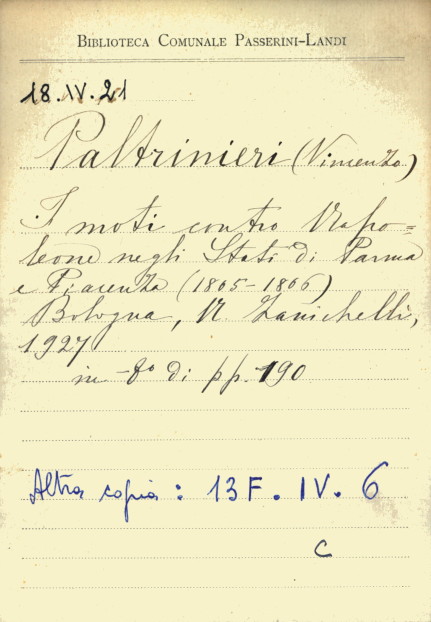 BIBLIOTECA COMUNALE PASSERINI-LANDI
18.IV.21
Paltrinieri (Vincenzo)
I moti contro Napo=
leone negli Stati di Parma
e Piacenza (1805-1806)
Bologna, N. Zanichelli,
1927
in-8º di pp. 190
Altra copia: 13F. IV. 6
C